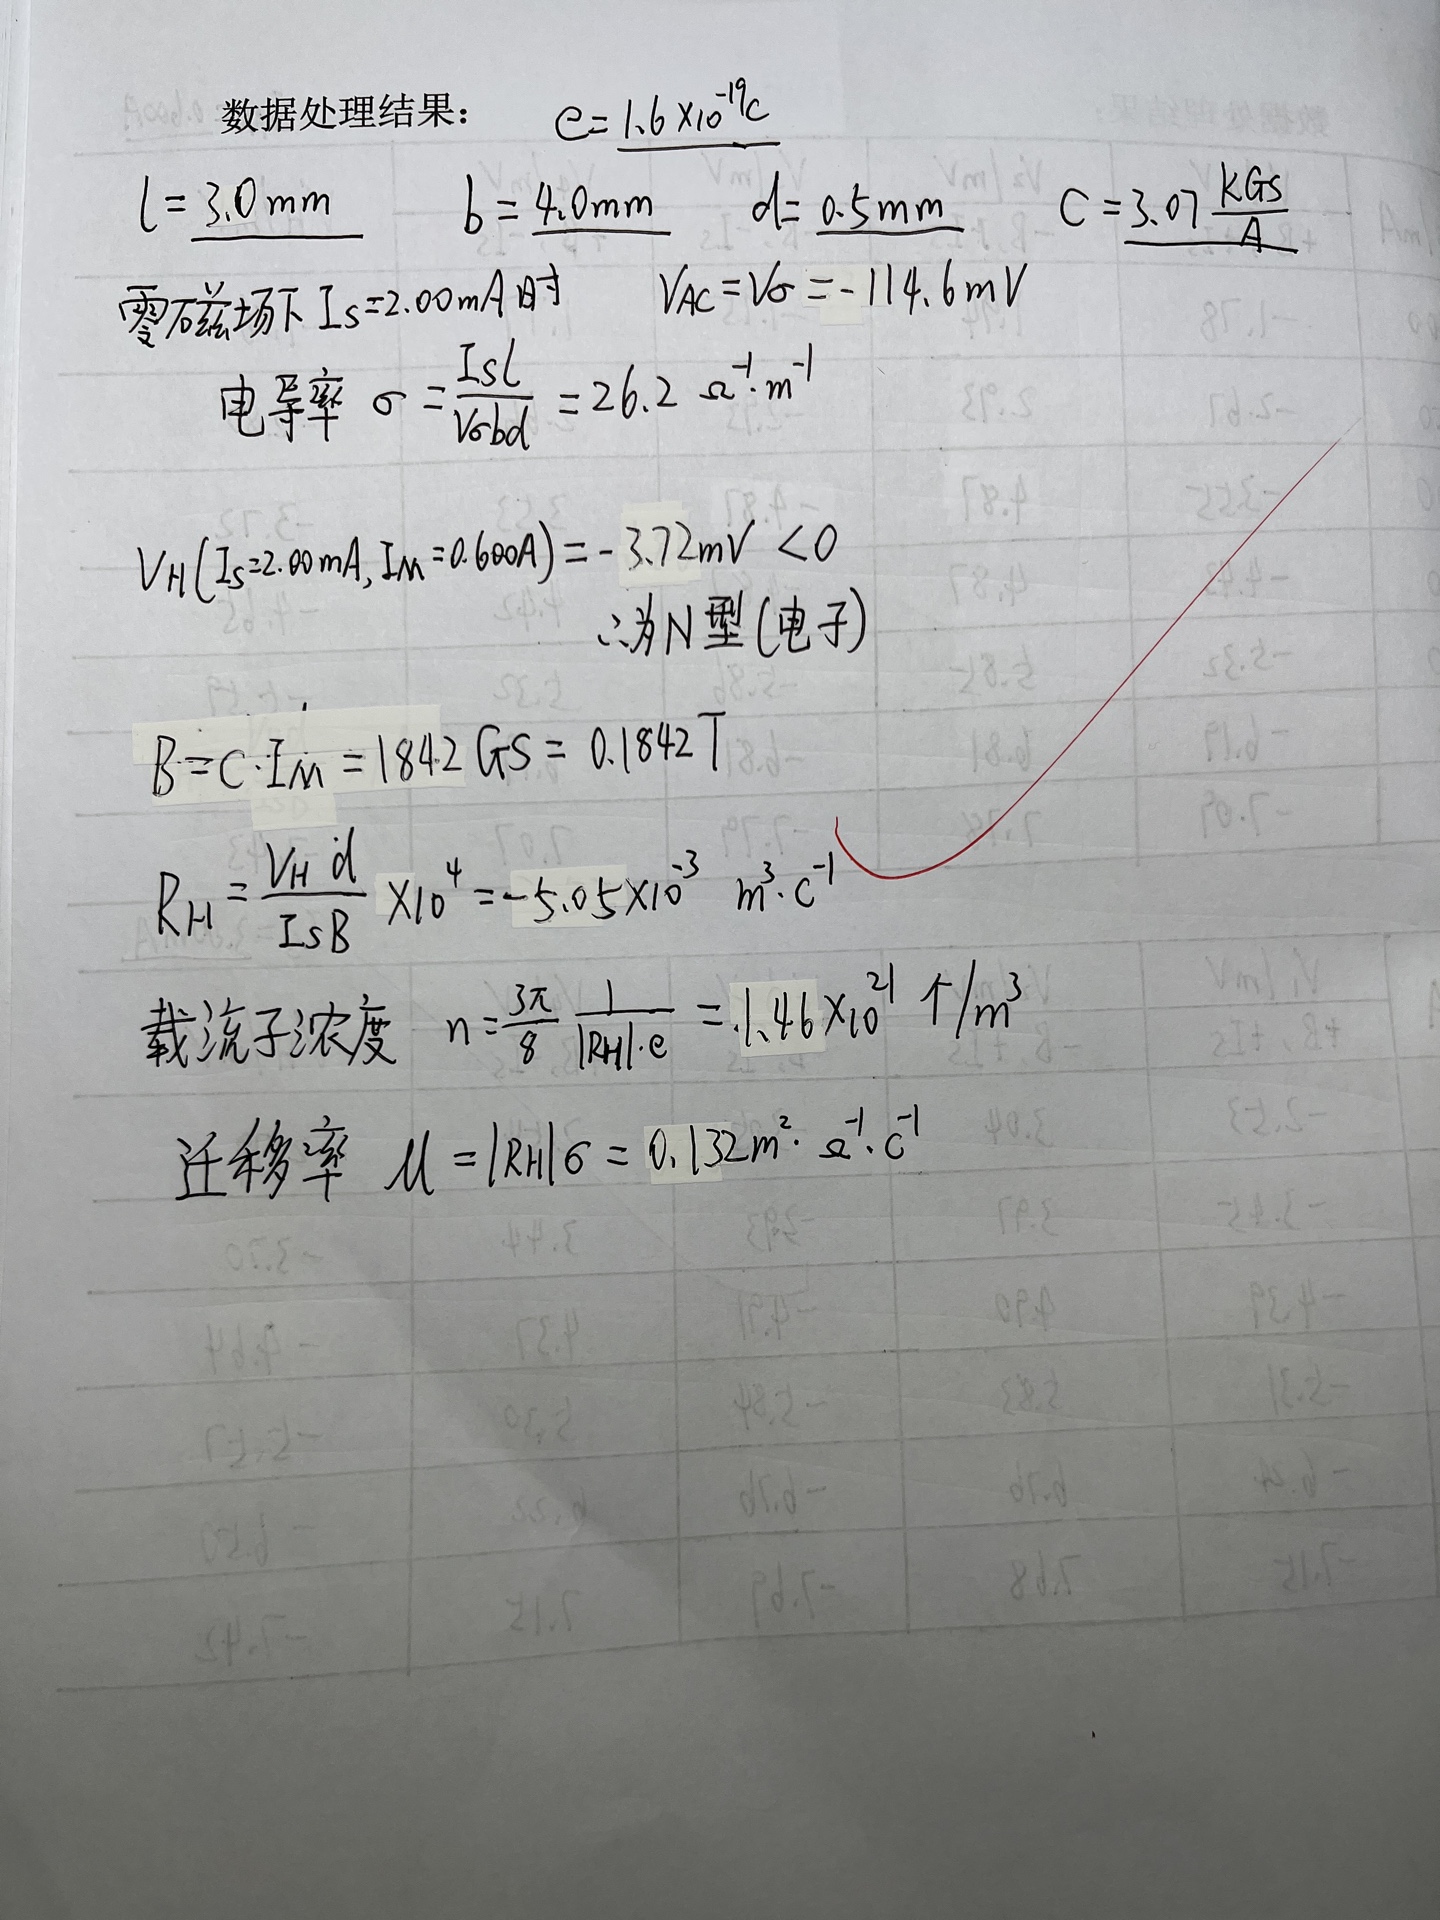 数据处理结果: e=1.6×10⁻¹⁹C
l=3.0mm b=4.0mm d=0.5mm C=3.07 KGs/A
零磁场下 Is=2.00mA时 V_AC=Vσ=-114.6mV
电导率 σ=Isl/Vσbd=26.2 Ω⁻¹·m⁻¹
V_H(Is=2.00mA, I_M=0.600A)=-3.72mV<0
∴为N型(电子)
B=C·I_M=1842GS=0.1842T
R_H=V_H d/IsB ×10⁴=-5.05×10⁻³ m³·C⁻¹
载流子浓度 n=3π/8 1/|R_H|·e=1.46×10²¹ 个/m³
迁移率 μ=|R_H|σ=0.132m²·Ω⁻¹·C⁻¹